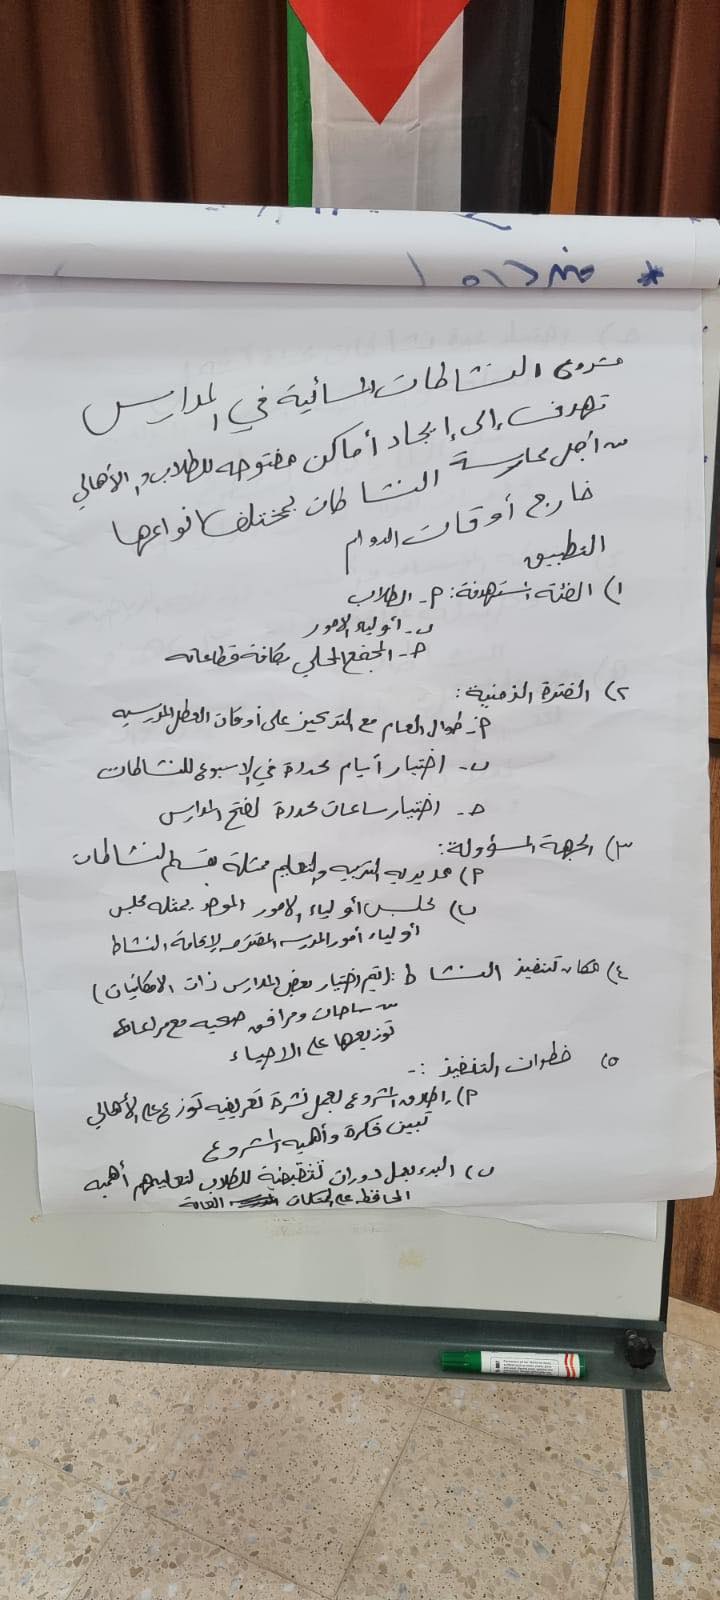 مشروع النشاطات المسائية في المدارس
تهدف إلى إيجاد أماكن مفتوحه للطلاب و الأهالي
من أجل ممارسة النشاطات بمختلف انواعها
خارج أوقات الدوام
التطبيق
١) الفئة المستهدفة: م- الطلاب
ب- أولياء الامور
ج- المجتمع المحلي بكافة قطاعاته
٢) الفترة الزمنية:
م- طوال العام مع التركيز على أوقات العطل المدرسيه
ب- اختيار أيام محددة في الاسبوع للنشاطات
ج- اختيار ساعات محددة لفتح المدارس
٣) الجهة المسؤولة:
م) مديريه التربيه والتعليم ممثلة بقسم النشاطات
ب) مجلس أولياء الامور الموحد يمثله مجلس
أولياء أمور المدرسه المقترحه لإقامة النشاط
٤) مكان تنفيذ النشاط: (يتم اختيار بعض المدارس ذات الامكانيات)
من ساحات ومرافق صحيه مع مراعاة
توزيعها على الاحياء
٥) خطوات التنفيذ :-
م) إطلاق المشروع بعمل نشرة تعريفيه توزع على الأهالي
تبين فكرة وأهميه المشروع
ب) البدء بعمل دورات تثقيفية للطلاب لتعليمهم أهميه
المحافظه على الممتلكات العامة